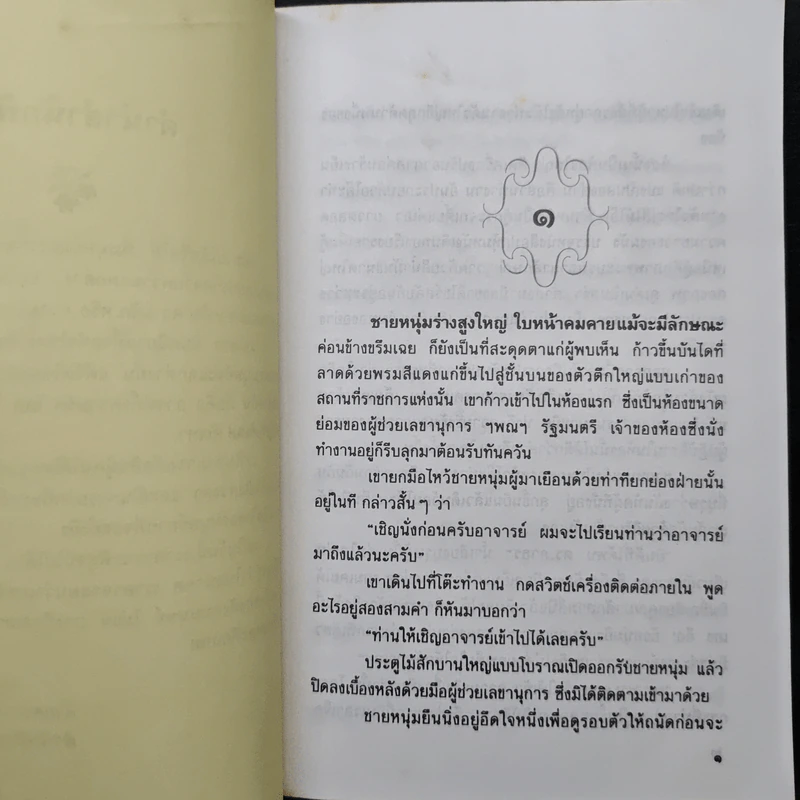 ๑
ชายหนุ่มร่างสูงใหญ่ ใบหน้าคมคายแม้จะมีลักษณะ
ค่อนข้างขรึมเฉย ก็ยังเป็นที่สะดุดตาแก่ผู้พบเห็น ก้าวขึ้นบันไดที่
ลาดด้วยพรมสีแดงแก่ขึ้นไปสู่ชั้นบนของตัวตึกใหญ่แบบเก่าของ
สถานที่ราชการแห่งนั้น เขาก้าวเข้าไปในห้องแรก ซึ่งเป็นห้องขนาด
ย่อมของผู้ช่วยเลขานุการ ฯพณฯ รัฐมนตรี เจ้าของห้องซึ่งนั่ง
ทำงานอยู่ก็รีบลุกมาต้อนรับทันควัน
เขายกมือไหว้ชายหนุ่มผู้มาเยือนด้วยท่าทียกย่องฝ่ายนั้น
อยู่ในที กล่าวสั้นๆ ว่า
“เชิญนั่งก่อนครับอาจารย์ ผมจะไปเรียนท่านว่าอาจารย์
มาถึงแล้วนะครับ”
เขาเดินไปที่โต๊ะทำงาน กดสวิตช์เครื่องติดต่อภายใน พูด
อะไรอยู่สองสามคำ ก็หันมาบอกว่า
“ท่านให้เชิญอาจารย์เข้าไปได้เลยครับ”
ประตูไม้สักบานใหญ่แบบโบราณเปิดออกรับชายหนุ่ม แล้ว
ปิดลงเบื้องหลังด้วยมือผู้ช่วยเลขานุการ ซึ่งมิได้ติดตามเข้ามาด้วย
ชายหนุ่มยืนนิ่งอยู่อึดใจหนึ่งเพื่อดูรอบตัวให้ถนัดก่อนจะ
๑